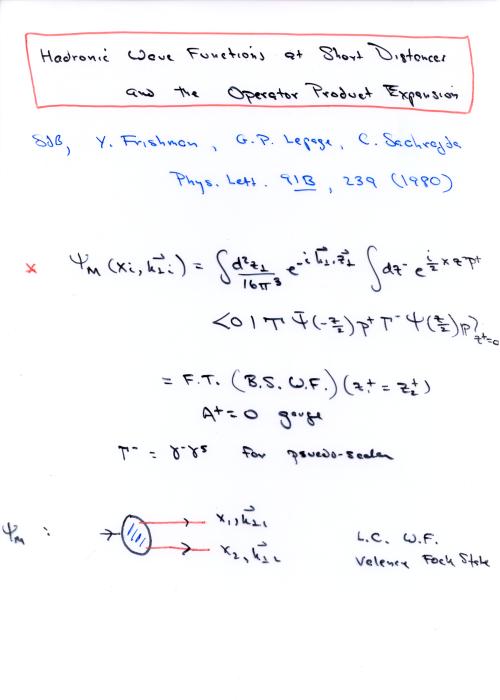 Hadronic Wave Functions at Short Distances
and the Operator Product Expansion
SJB, Y. Frishman, G.P. Lepage, C. Sachrajda
Phys. Lett. 91B, 239 (1980)
x Ψ_M (x_i, k⃗_⊥i) = ∫ d²z_⊥/16π³ e^{-i k⃗_⊥·z⃗_⊥} ∫ dz⁻ e^{i/2 x z⁻p⁺}
<0 | T Ψ̄(-z/2) p⁺ Γ⁻ Ψ(z/2) |p>_{z⁺=0}
= F.T. (B.S. W.F.) (z₁⁺ = z₂⁺)
A⁺ = 0 gauge
Γ⁻ = γ⁻γ⁵ for psuedo-scalar
Ψ_M :
x₁, k⃗_⊥1
x₂, k⃗_⊥2
L.C. W.F.
Valence Fock State